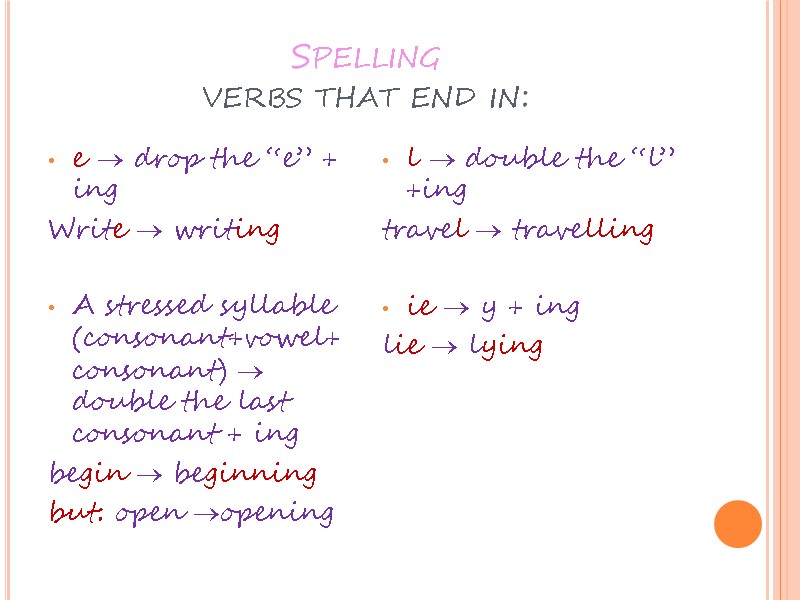 SPELLING
VERBS THAT END IN:
• e → drop the “e” +
ing
Write → writing
• A stressed syllable
(consonant+vowel+
consonant) →
double the last
consonant + ing
begin → beginning
but: open →opening
• l → double the “l”
+ing
travel → travelling
• ie → y + ing
lie → lying